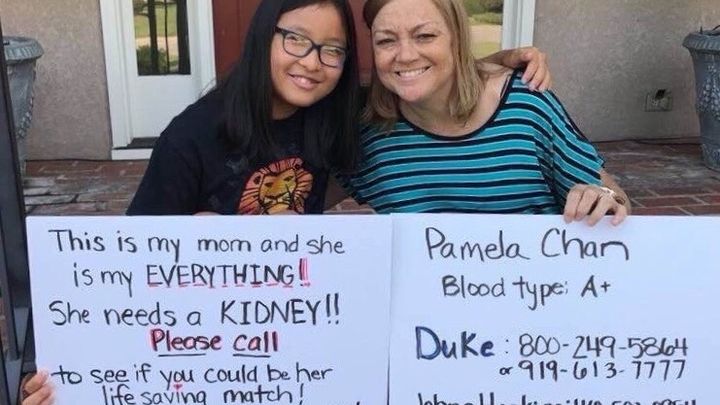 This is my mom and she
is my EVERYTHING!!
She needs a KIDNEY!!
Please call
to see if you could be her
life saving match!
Pamela Chan
Blood type: A+
Duke: 800-249-5864
or 919-613-7777